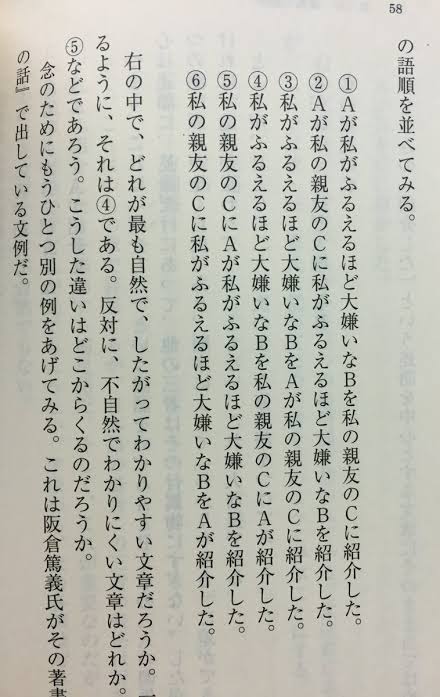 58
の語順を並べてみる。
①Aが私がふるえるほど大嫌いなBを私の親友のCに紹介した。
②Aが私の親友のCに私がふるえるほど大嫌いなBを紹介した。
③私がふるえるほど大嫌いなBをAが私の親友のCに紹介した。
④私がふるえるほど大嫌いなBを私の親友のCにAが紹介した。
⑤私の親友のCにAが私がふるえるほど大嫌いなBを紹介した。
⑥私の親友のCに私がふるえるほど大嫌いなBをAが紹介した。
右の中で、どれが最も自然で、したがってわかりやすい文章だろうか。一
るように、それは④である。反対に、不自然でわかりにくい文章はどれか。
⑤などであろう。こうした違いはどこからくるのだろうか。
念のためにもうひとつ別の例をあげてみる。これは阪倉篤義氏がその著書
の話』で出している文例だ。